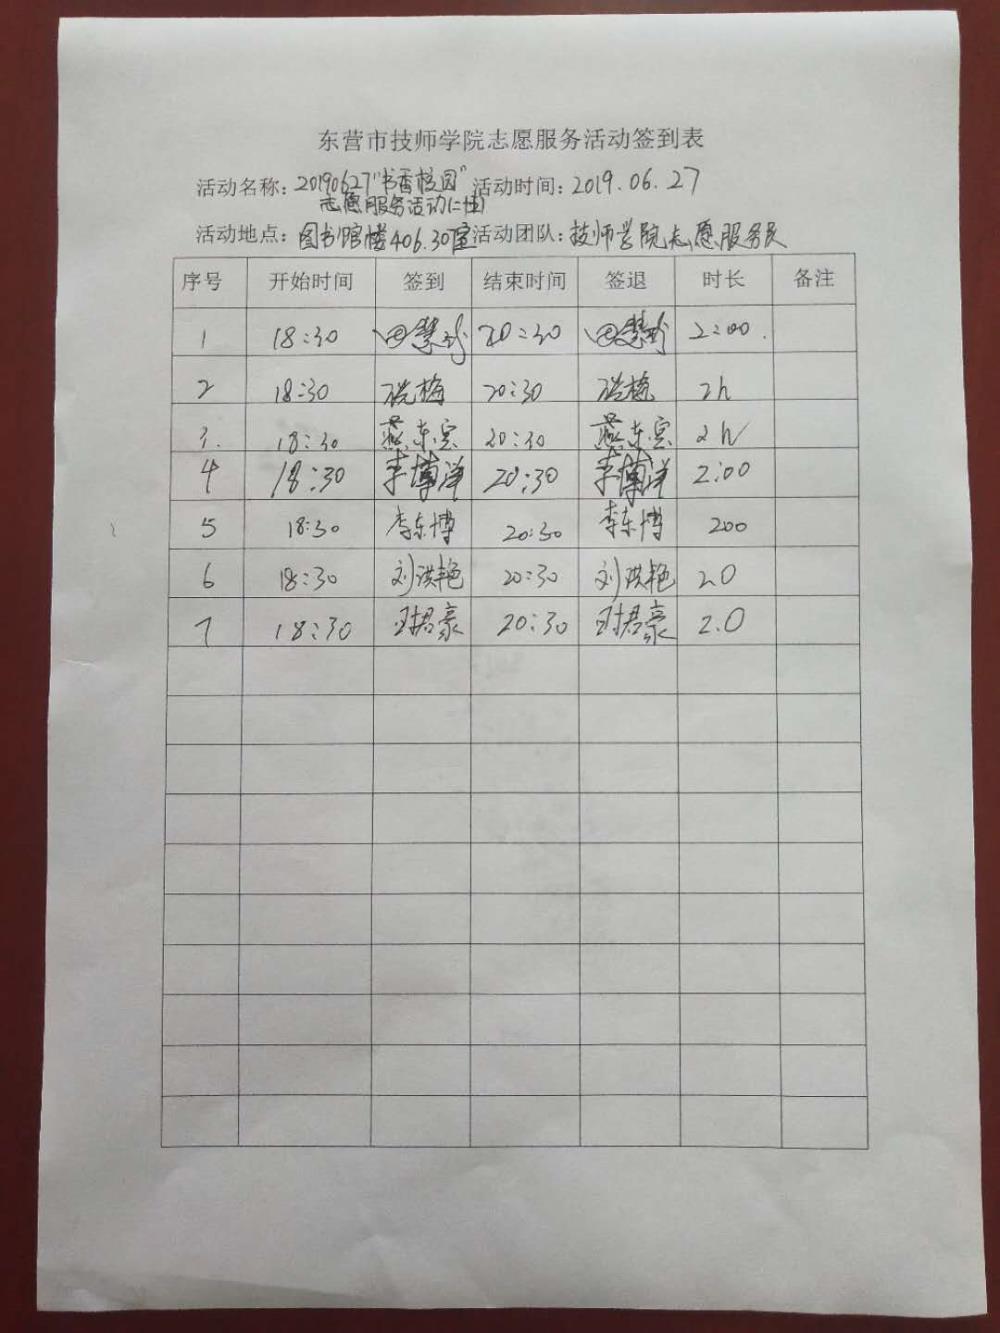 东营市技师学院志愿服务活动签到表
活动名称：20190627"书香校园" 活动时间：2019.06.27
志愿服务活动(二)
活动地点：图书馆楼406.30室 活动团队：技师学院志愿服务
序号 开始时间 签到 结束时间 签退 时长 备注
1 18:30 田慧 20:30 田慧 2:00.
2 18:30 梅 20:30 梅 2h
3. 18:30 燕东宾 20:30 燕东宾 2h
4 18:30 李博洋 20:30 李博洋 2:00
5 18:30 李东博 20:30 李东博 200
6 18:30 刘洪艳 20:30 刘洪艳 2.0
7 18:30 君豪 20:30 君豪 2.0